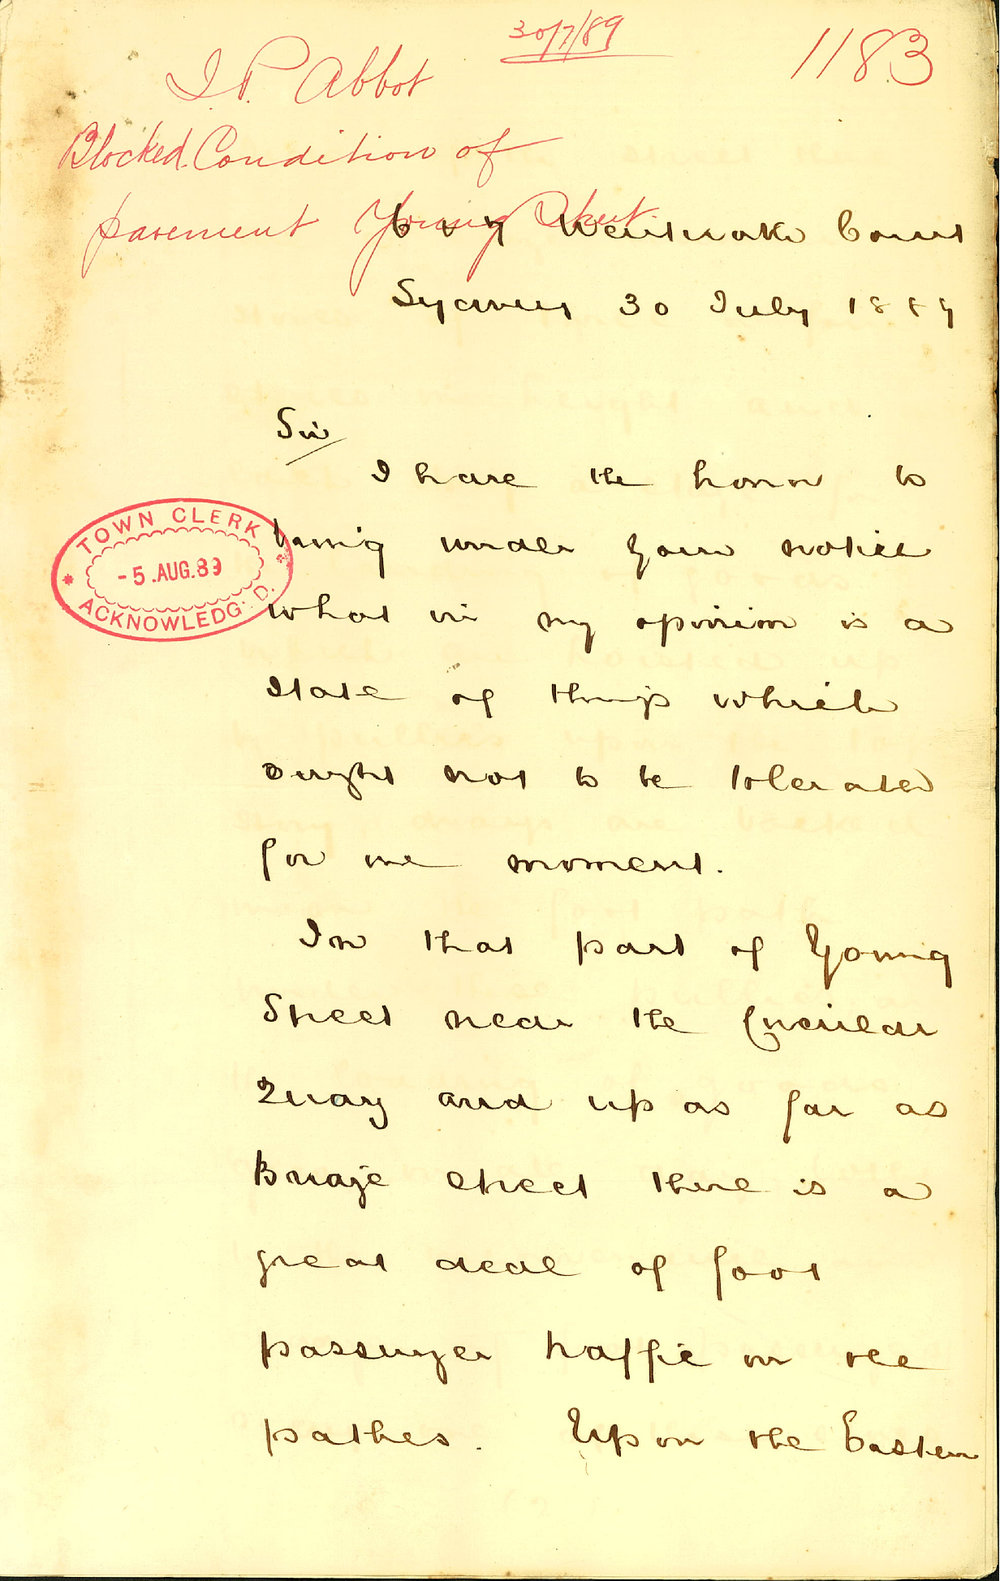 30/7/89
1183
J. P. Abbot
Blocked Condition of
pavement Young Street
6 & 7 Wentworth Court
Sydney 30 July 1889
Sir
I have the honor to
bring under your notice
what in my opinion is a
state of things which
ought not to be tolerated
for one moment.
TOWN CLERK
-5.AUG.89
ACKNOWLEDG.D.
In that part of Young
Street near the Circular
Quay and up as far as
Bridge street there is a
great deal of foot
passenger traffic on the
pathes. Upon the Eastern